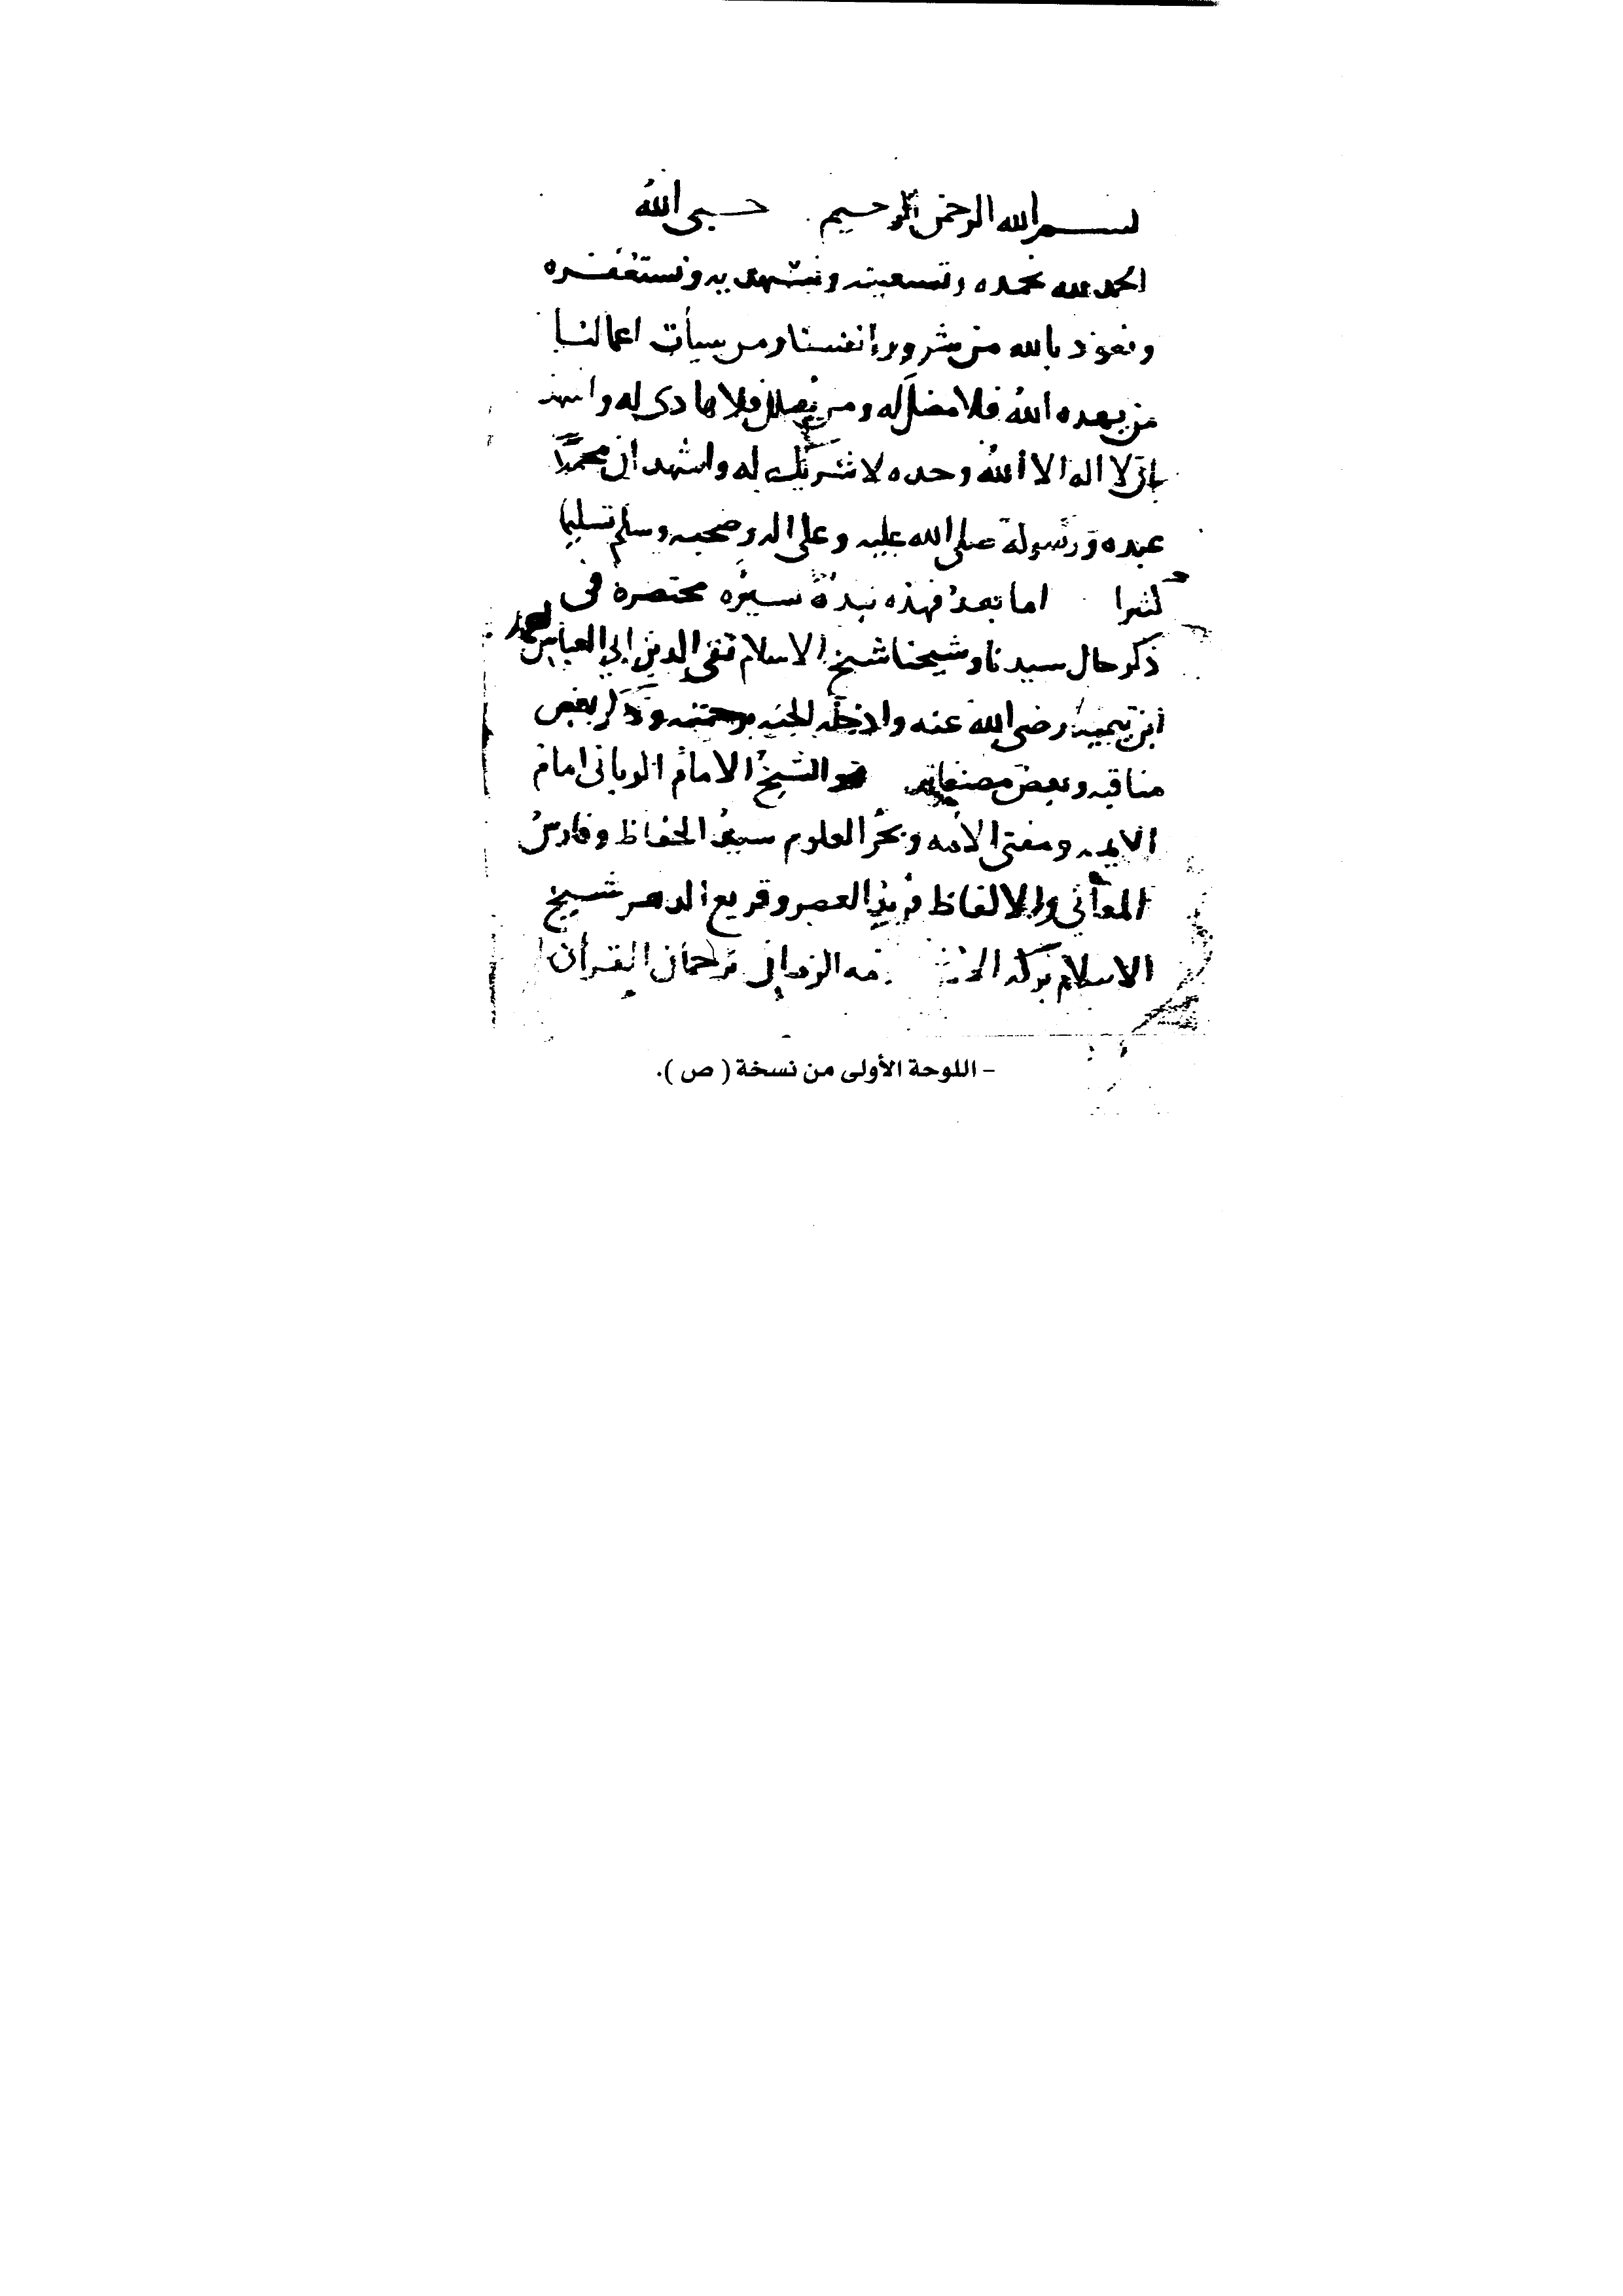 بسم الله الرحمن الرحيم حسبي الله
الحمد لله نحمده ونستعينه ونستهديه ونستغفره
ونعوذ بالله من شرور انفسنا ومن سيأت اعمالنا
من يهده الله فلا مضل له ومن يضلل فلا هادي له واشهد
ان لا اله الا الله وحده لا شريك له واشهد ان محمدًا
عبده ورسوله صلى الله عليه وعلى اله وصحبه وسلم تسليما
كثيرا اما بعد فهذه نبذة يسيره مختصرة في
ذكر حال سيدنا وشيخنا شيخ الاسلام تقي الدين ابي العباس احمد
ابن تيميه رضي الله عنه وادخله الجنه برحمته وذكر بعض
مناقبه وبعض مصنفاته هو الشيخ الامام الرباني امام
الايمه ومفتي الامه وبحر العلوم سيد الحفاظ وفارس
المعاني والالفاظ فريد العصر وقريع الدهر شيخ
الاسلام بركه الزمان ترجمان القرآن
– اللوحة الأولى من نسخة ( ص ).